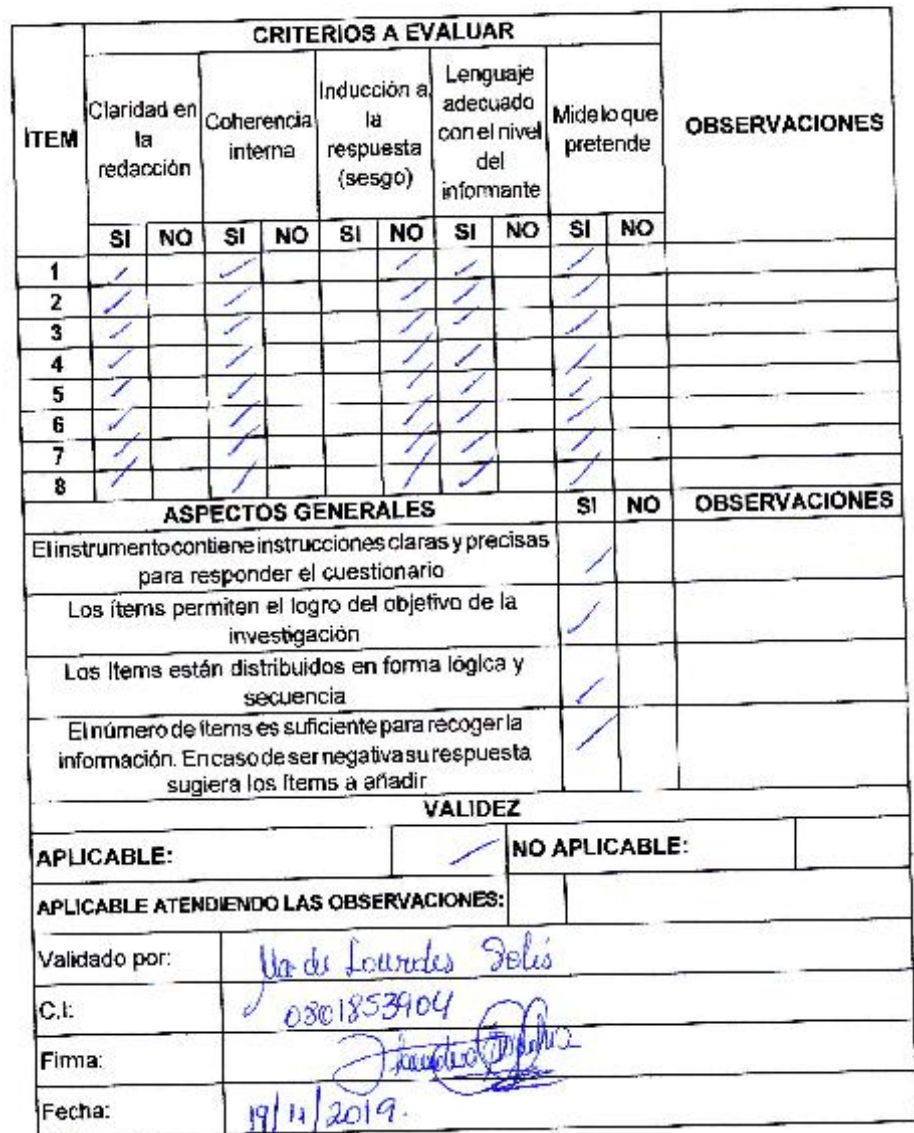 CRITERIOS A EVALUAR
ÍTEM
Claridad en la redacción
Coherencia interna
Inducción a la respuesta (sesgo)
Lenguaje adecuado con el nivel del informante
Mide lo que pretende
OBSERVACIONES
SI NO SI NO SI NO SI NO SI NO
1
2
3
4
5
6
7
8
ASPECTOS GENERALES SI NO OBSERVACIONES
El instrumento contiene instrucciones claras y precisas
para responder el cuestionario
Los ítems permiten el logro del objetivo de la
investigación
Los Items están distribuidos en forma lógica y
secuencia
El número de ítems es suficiente para recoger la
información. En caso de ser negativa su respuesta
sugiera los ítems a añadir
VALIDEZ
APLICABLE: NO APLICABLE:
APLICABLE ATENDIENDO LAS OBSERVACIONES:
Validado por: Ma de Lourdes Solís
C.I: 0801853904
Firma:
Fecha: 19/11/2019.